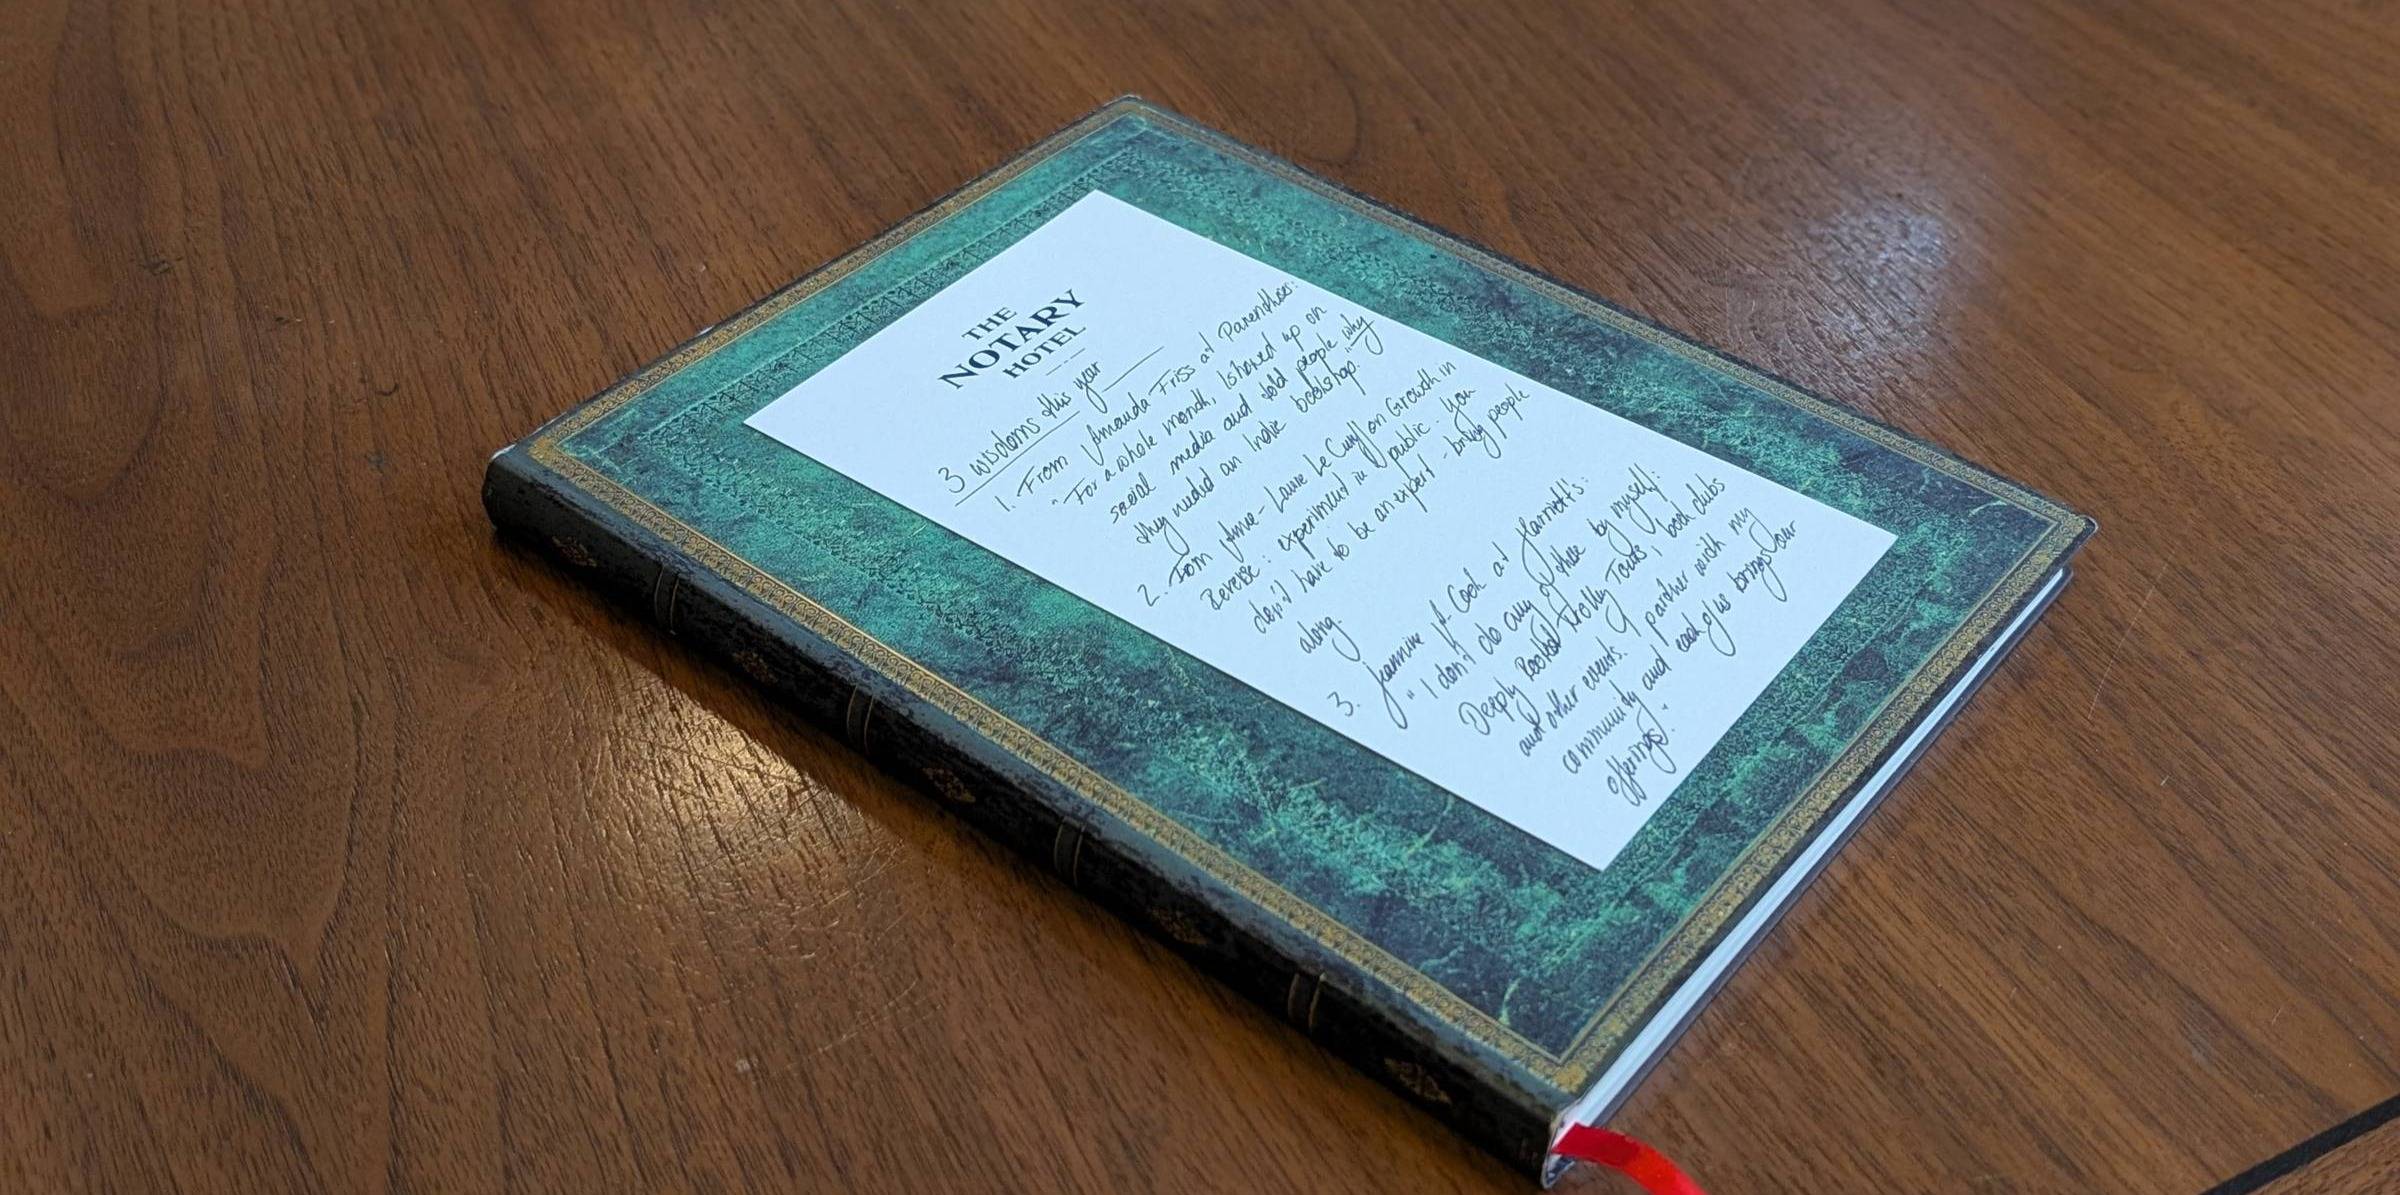 THE
NOTARY
HOTEL
3 wisdoms this year
1. From Amanda Friss at Parenthoses:
"For a whole month, I showed up on
social media and told people why
they needed an Indie bookshop."
2. From Anne-Laure Le Cunff on Growth in
Reverse: experiment in public. You
don't have to be an expert - bring people
along.
3. Jeannine A. Cook at Harriett's:
"I don't do any of these by myself:
Deeply Rooted Trolley Tours, book clubs
and other events. I partner with my
community and each of us brings our
offerings."